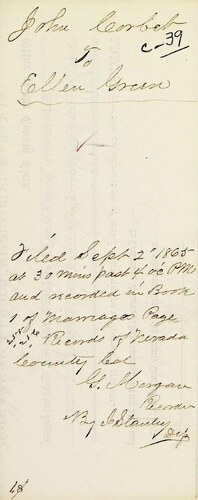 John Corbett
C-39
To
Ellen Green
Filed Sept 2d 1865
at 30 mins past 4 oc PM
and recorded in Book
1 of Marriages Page
Records of Nevada
County Cal
G. Morgan
Recorder
By J Stanley
Dep